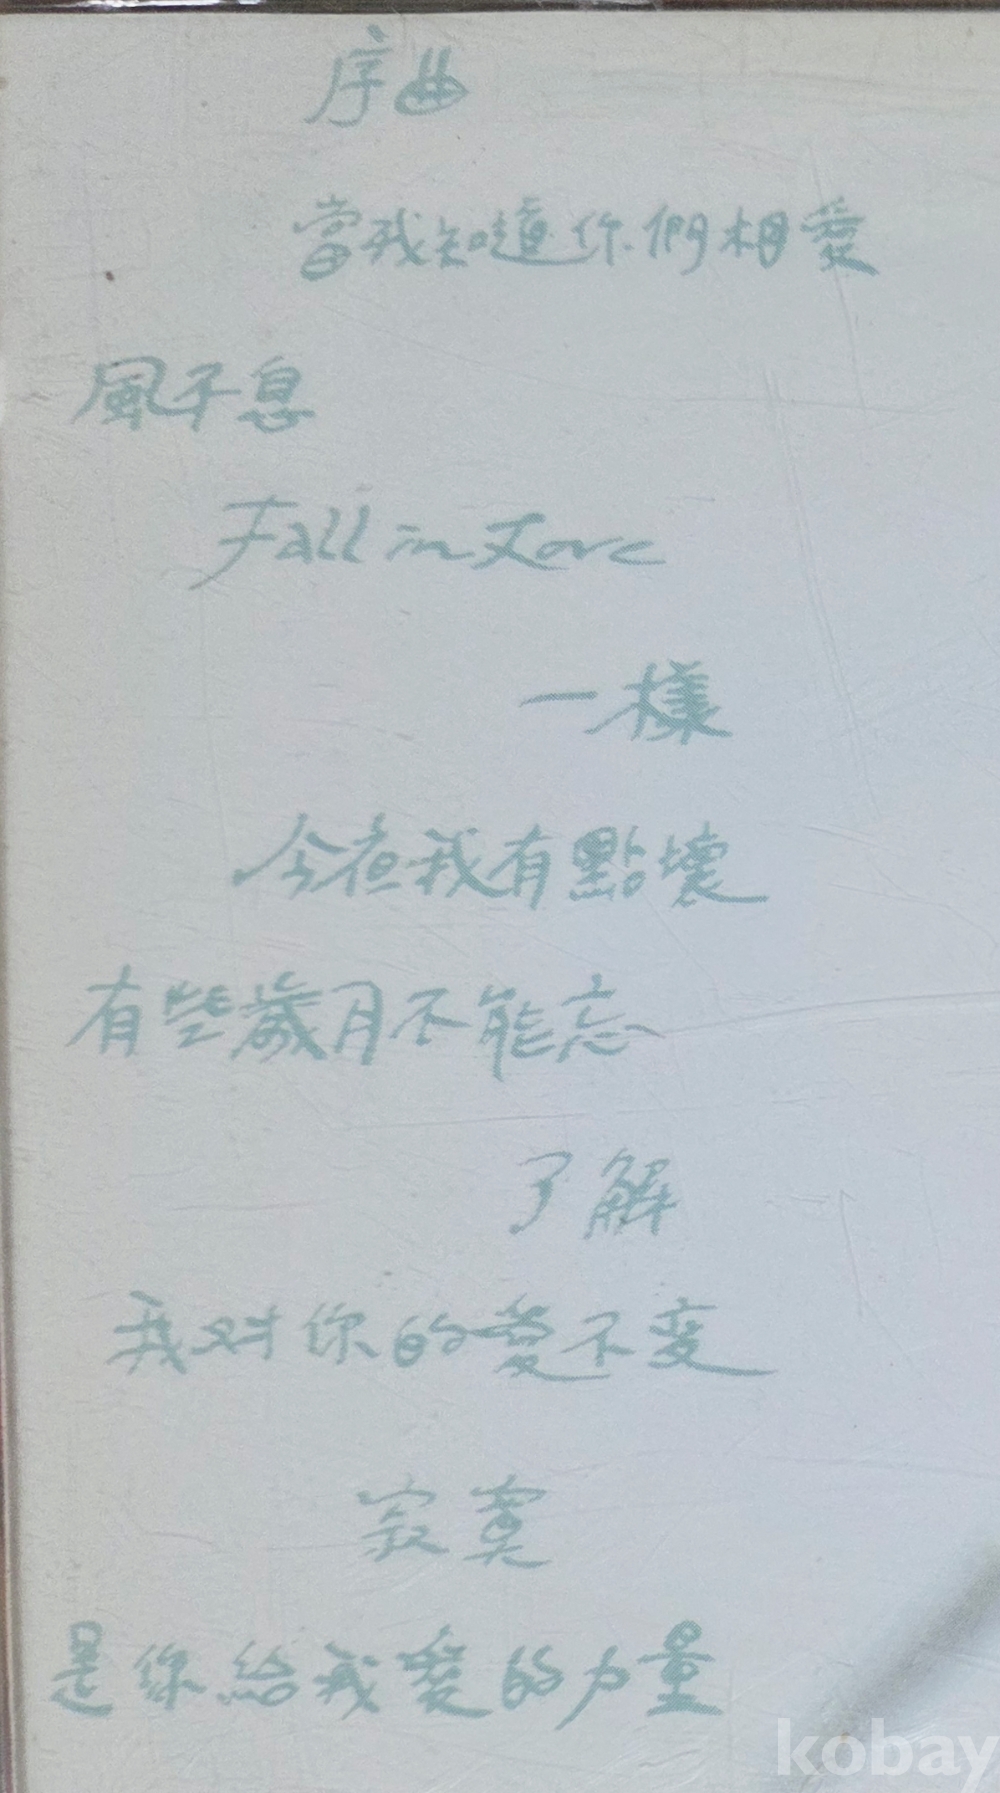 序曲
當我知道你們相愛
風不息
Fall in Love
一樣
今夜我有點壞
有些歲月不能忘
了解
我对你的愛不变
寂寞
是你給我愛的力量
kobay